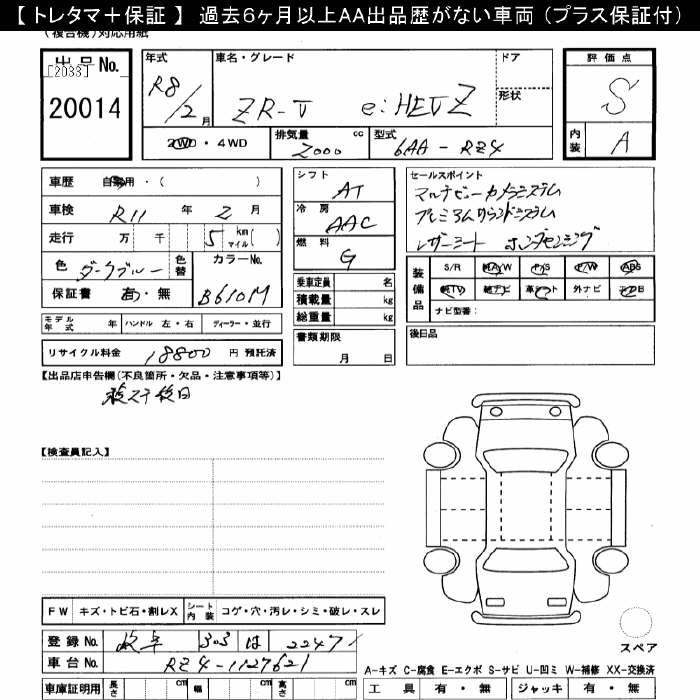 【 トレタマ＋保証 】 過去6ヶ月以上AA出品歴がない車両 （プラス保証付）
(複合機)対応用紙
出品 No.
[2033]
20014
年式
R8/2月
車名・グレード
ZR-V e:HEV Z
ドア
形状
評価点
S
内装
A
2WD・4WD
排気量 2000 cc
型式
6AA - RZ4
車歴 自家用・( )
車検 R11 年 2 月
走行 万 千 5 km マイル( )
色 ダークブルー
色替
カラーNo.
B610M
保証書 有・無
モデル年式 年
ハンドル 左・右
ディーラー・並行
リサイクル料金 18800 円 預託済
シフト AT
冷房 AAC
燃料 G
乗車定員 名
積載量 kg
総重量 kg
書類期限
月 日
セールスポイント
マルチビューカメラシステム
プレミアムサウンドシステム
レザーシート ホンダセンシング
装備品
S/R AAW P/S P/W ABS
純TV 純ナビ 革シート 外ナビ エアB
ナビ型番：
後日品
【出品店申告欄(不良箇所・欠品・注意事項等)】
後日
【検査員記入】
FW キズ・トビ石・割レX
シート内装 コゲ・穴・汚レ・シミ・破レ・スレ
登録 No. 岐阜 303 は 2247
車台 No. RZ4-1127621
車庫証明用 長さ cm 幅 cm 高さ cm
スペア
A-キズ C-腐食 E-エクボ S-サビ U-凹ミ W-補修 XX-交換済
工具 有・無 ジャッキ 有・無